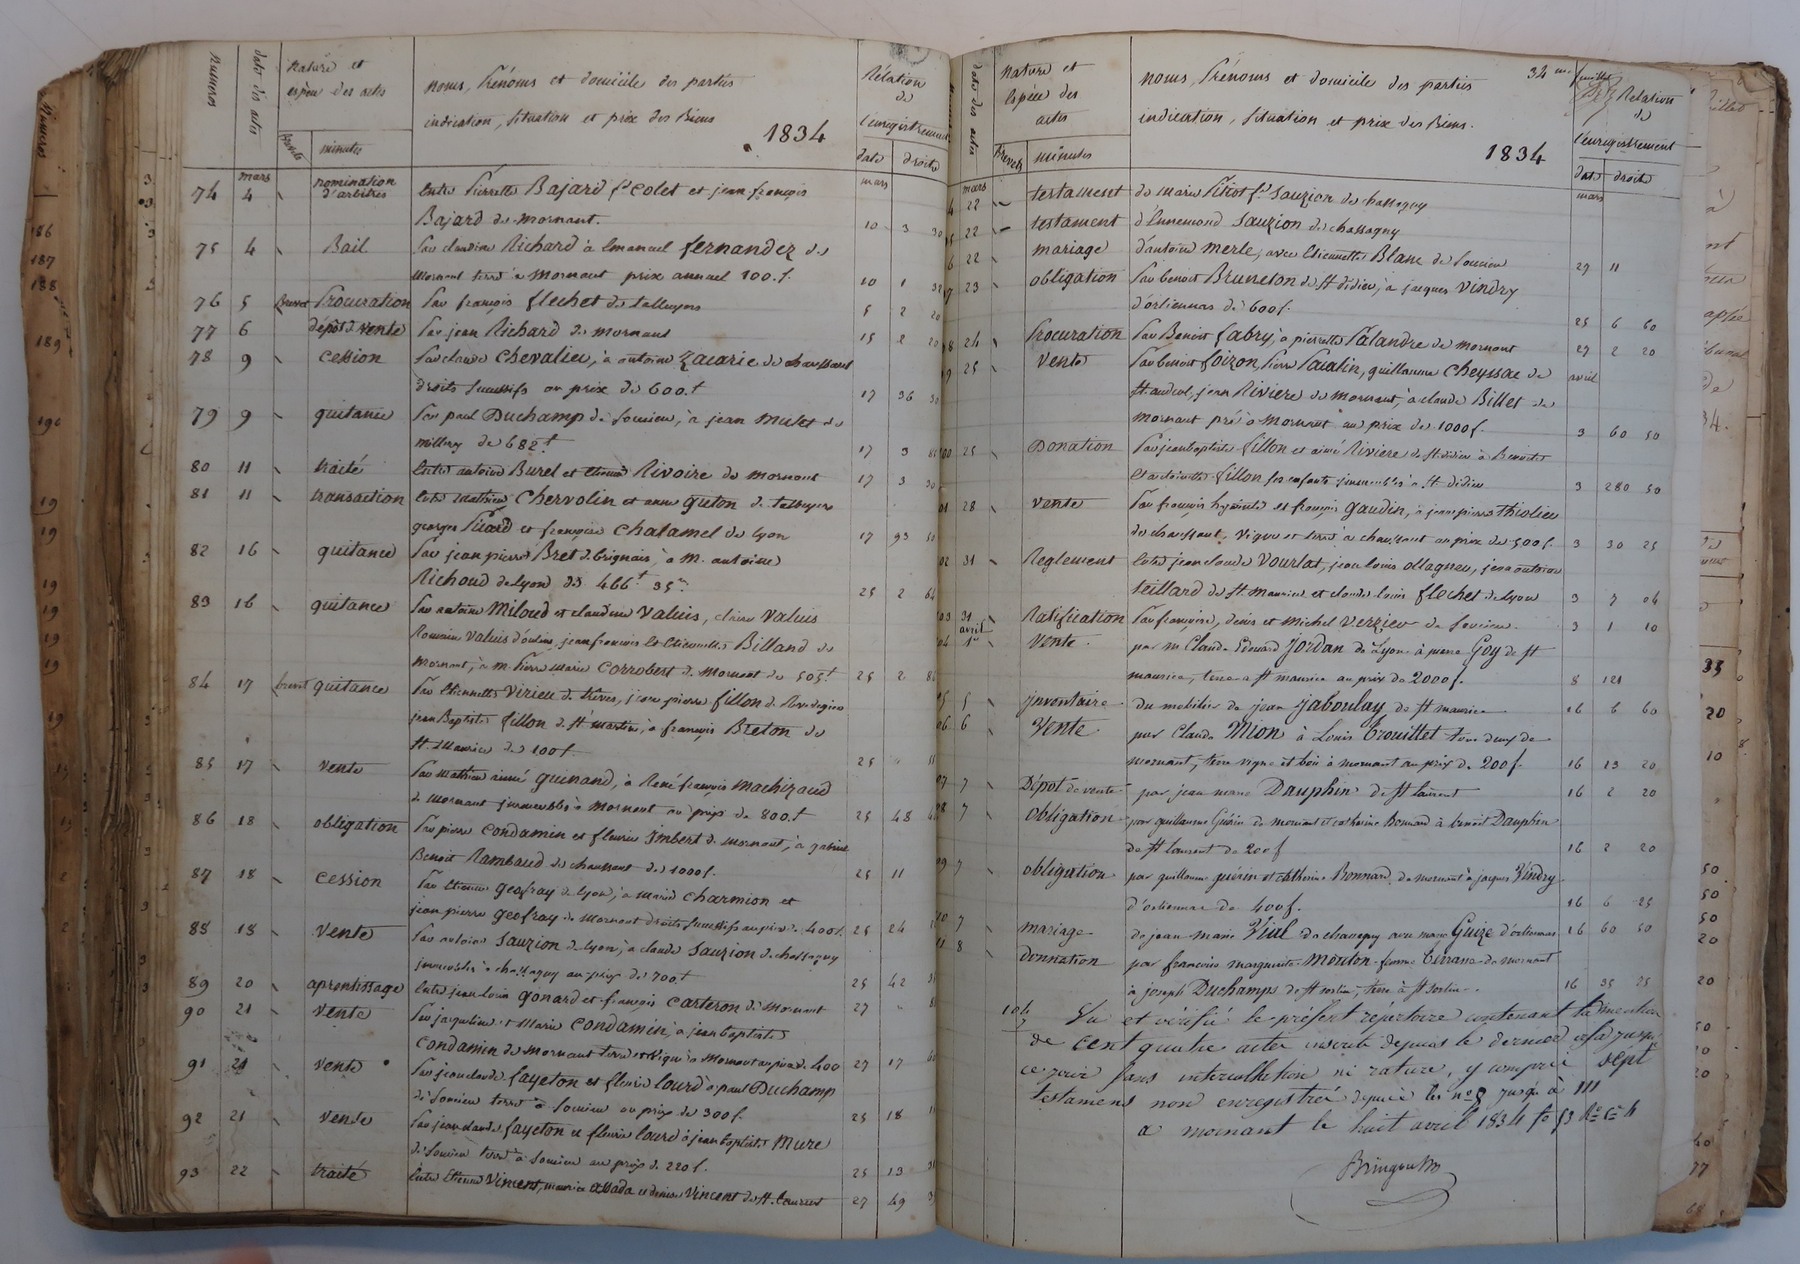 Numeros
dates des actes
nature et
espece des actes
brevets
minutes
noms, Prénoms et domicile des parties
indication, situation et prix des Biens
1834
Rélation
de
l'enregistrement
date
droits
mars
mars
74 4 nomination d'arbitres Entre Pierrette Bajard fe Colet et jean françois
Bajard de mornant. 10 3 30
75 4 Bail Par claudine Richard à Emanuel fernandez de
Mornant terre à Mornant prix annuel 100.f. 10 1
76 5 Brevet Procuration Par françois flechet de talluyers 5 2 20
77 6 dépôt de vente Par jean Richard de mornant 15 2 20
78 9 Cession Par claude Chevalier, à antoine Zacarie de chaussant
droits successifs au prix de 600.f 17 36 30
79 9 quitance Par paul Duchamp de Soucieu, à jean Mulet de
millery de 682f 17 3
80 11 traité Entre antoine Burel et Etienne Rivoire de Mornant 17 3 30
81 11 transaction Entre Mathieu Chervolin et anne Guton de talluyers
georges Picard et françoise Chalamel de Lyon 17 93 50
82 16 quitance Par jean pierre Bret de Brignais, à M. antoine
Richoud de Lyon de 466f 35c 25 2 64
83 16 quitance Par antoine Miloud et claudine Valuis, claire Valuis
Romain Valuis d'oulins, jean françois et Etiennette Billand de
Mornant, à m. Pierre Marie Corrobert de Mornant de 505f 25 2
84 17 brevet quitance Par Etiennette Virieu de trèves, jean pierre fillon de
jean Baptiste fillon de St martin, à françois Breton de
St Maurice de 100f 25 " 11
85 17 vente Par Mathieu aimé guinand, à René françois Machizaud
de mornant immeubles à Mornant au prix de 800.f 25 48
86 18 obligation Par pierre Condamin et fleurie Imbert de mornant, à gabriel
Benoit Rambaud de chaussant de 1000f. 25 11
87 18 Cession Par Etienne geofray de Lyon, à Marie Charmion et
jean pierre geofray de Mornant droits successifs au prix de 400f. 25 24
88 18 vente Par antoine Sauzion de Lyon, à claude Sauzion de chassagny
immeubles à chassagny au prix de 700f 25 42
89 20 aprentissage Entre jean Louis gonard et françois Carteron de Mornant 27 "
90 21 vente Par jacqueline et Marie Condamin, à jean baptiste
Condamin de Mornant terre et vigne à Mornant au prix de 400 27 17 60
91 21 vente Par jean claude fayeton et fleurie lourd à paul Duchamp
de Soucieu terre à Soucieu au prix de 300f. 25 18 11
92 21 vente Par jean claude fayeton et fleurie lourd à jean baptiste Mure
de Soucieu terre à Soucieu au prix de 220f. 25 13
93 22 traité Entre Etienne Vincent, maurice et denise Vincent de St. Laurent 27 49
dates des actes
nature et
Espèce des
actes
Brevets
minutes
noms, Prénoms et domicile des parties
indication, situation et prix des Biens.
1834
34 me feuillet
Relation
de
l'enregistrement
date
droits
mars
mars
22 testament de marie Pitiot fe Sauzion de chassagny
22 testament d'Ennemond Sauzion de chassagny
22 mariage d'antoine merle, avec Etiennette Blanc de Soucieu 27 11
23 obligation Par benoit Bruneton de St didier, à jacques Vindry
d'orliennas de 600f. 25 6 60
24 Procuration Par Benoit fabry, à pierrette Palandre de mornant 27 2 20
25 vente Par benoit foizon, Pierre Pacalin, guillaume Cheyssac de avril
St andeol, jean Riviere de mornant, à claude Billet de
mornant pré à Mornant au prix de 1000f. 3 60 50
25 Donation Par jean baptiste fillon et aimé Riviere de St didier à Benoite
et antoinette fillon ses enfants immeubles à St didier 3 280 50
28 vente Par françois hyacinte et françois gaudin, à jean pierre thiolier
de chaussant, vigne et terre à chaussant au prix de 500f. 3 30 25
31 Reglement Entre jean claude Vourlat, jean louis ollagnier, jean antoine
teillard de St Maurice et claude louis flechet de Lyon 3 7 04
31 Ratification Par françoise, denis et Michel Verzieu de Soucieu. 3 1 10
avril
1er vente par m Claude Edouard Jordan de Lyon à pierre Goy de St
maurice, terre a St maurice au prix de 2000f. 8 121
5 jnventaire du mobilier de jean Jaboulay de St maurice 16 6 60
6 Vente par Claude Mion à Louis Trouillet tous deux de
mornant, terre vigne et bois à mornant au prix de 200f. 16 13 20
7 Dépôt de vente par jean marie Dauphin de St laurent 16 2 20
7 Obligation par guillaume Guérin de mornant et catherine Bonnard à benoit Dauphin
de St laurent de 200f 16 2 20
7 obligation par guillaume guérin et catherine Bonnard de mornant à jacques Vindry
d'orliennas de 400f. 16 6 25
7 mariage de jean marie Viul de chavagny avec marie Guize d'orliennas 16 60 50
8 donnation par francoise marguerite Mouton femme Terrasse de mornant
à joseph Duchamps de St sorlin, terre à St sorlin. 16 35 25
104
7
Vu et vérifié le présent répertoire contenant la mention
de cent quatre actes inscrits depuis le dernier visa jusqu'à
ce jour sans intercallation ni rature, y compris sept
testamens non enregistrés depuis les nos 8 jusqu'à 111
a mornant le huit avril 1834